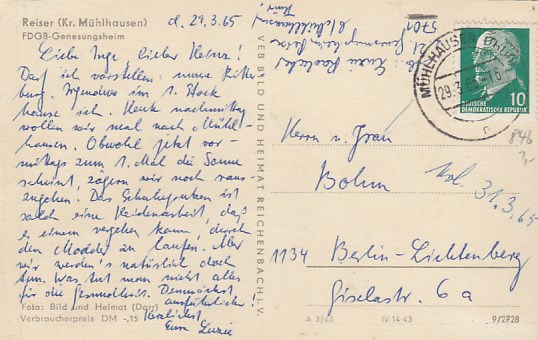 Reiser (Kr. Mühlhausen)
FDGB-Genesungsheim
d. 29.3.65
Liebe Inge, lieber Heinz!
Darf ich vorstellen: unsre Ritter-
burg. Irgendwo im 1. Stock
hause ich. Heute nachmittag
wollen wir mal nach Mühl-
hausen. Obwohl jetzt vor-
mittags zum 1. Mal die Sonne
scheint, zögern wir noch raus-
zugehen. Das Schuheputzen ist
solch eine Heidenarbeit, daß
es einem vergehen kann, durch
den Modder zu laufen. Aber
wir werden's natürlich doch
tun. Was tut man nicht alles
für die Gesundheit. Demnächst
ausführlicher.
Herzlichst
Eure Luzie
Foto: Bild und Heimat (Darr)
Verbraucherpreis DM -,15
VEB BILD UND HEIMAT REICHENBACH I. V.
Luzie
5701
MÜHLHAUSEN
29.3.65-16
n
10
DEUTSCHE
DEMOKRATISCHE REPUBLIK
846
Herrn u. Frau
Bohm
31.3.65
1134 Berlin-Lichtenberg
Giselastr. 6a
A 3/63 IV-14-45 9/2728